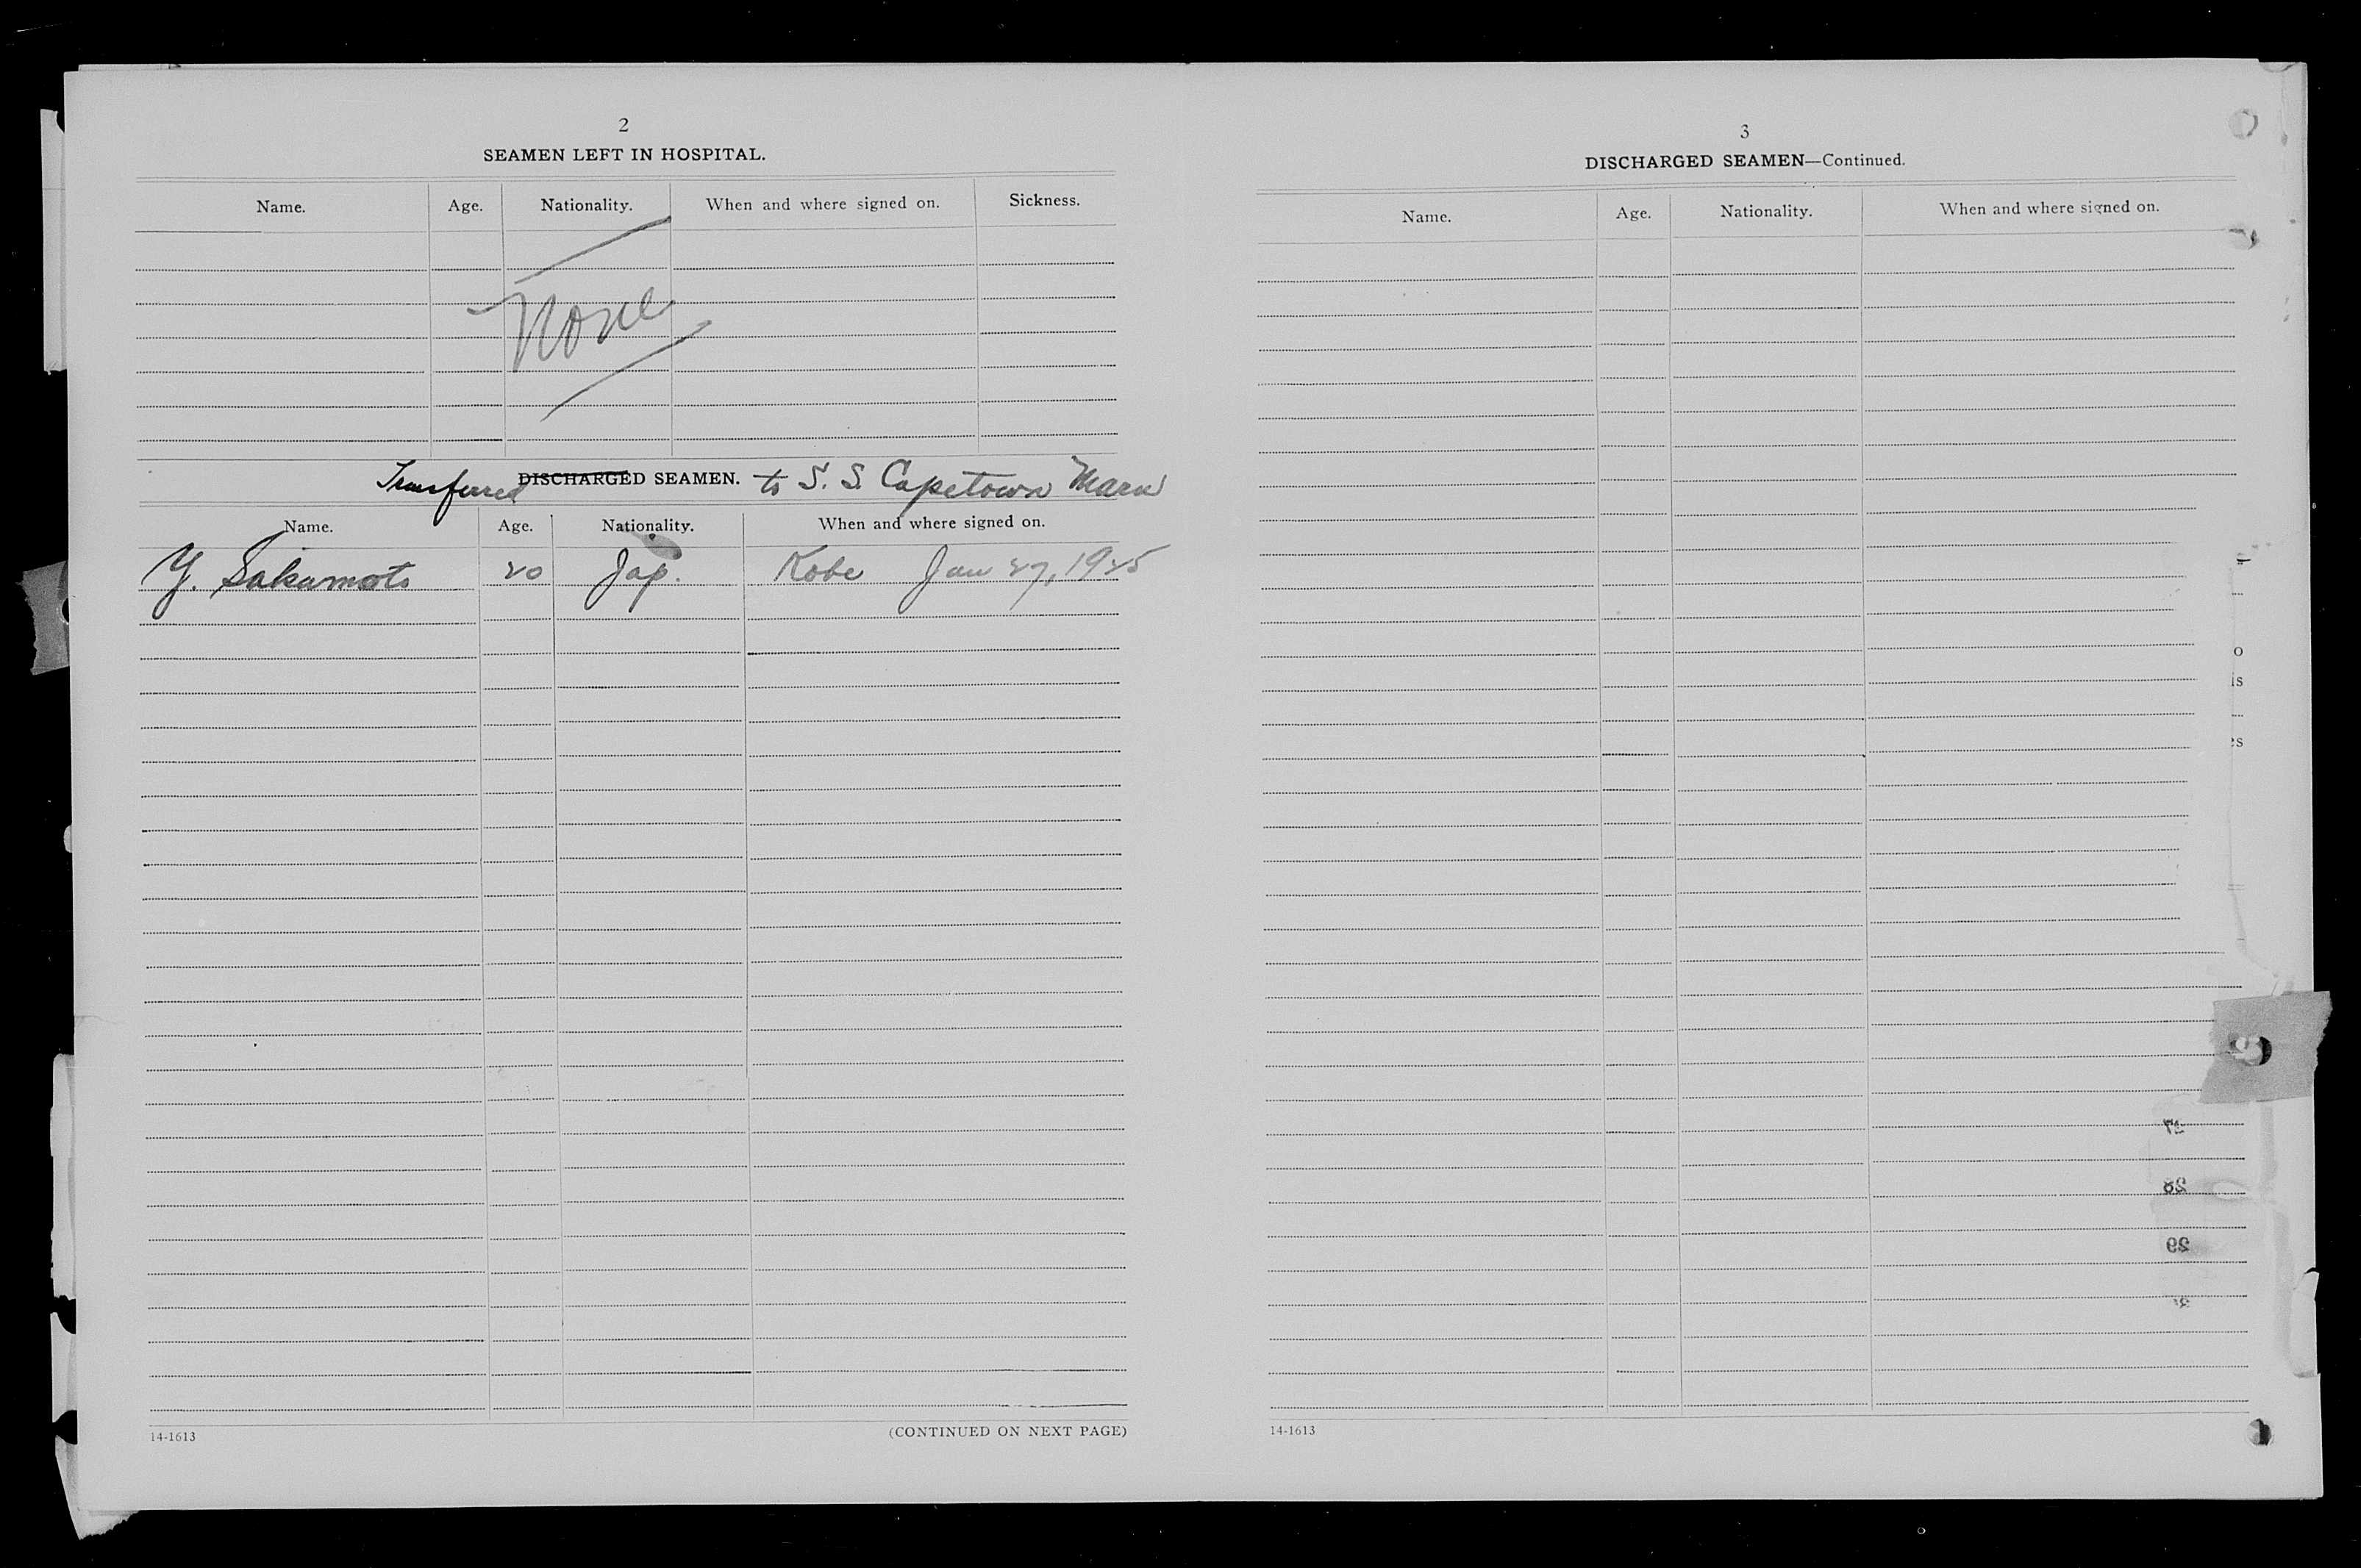 2
SEAMEN LEFT IN HOSPITAL.
Name. Age. Nationality. When and where signed on. Sickness.
None
Transferred DISCHARGED SEAMEN. to S. S. Capetown Maru
Name. Age. Nationality. When and where signed on.
Y. Sakamoto 20 Jap. Kobe Jan 27, 1925
14-1613 (CONTINUED ON NEXT PAGE)
3
DISCHARGED SEAMEN—Continued.
Name. Age. Nationality. When and where signed on.
o
is
es
27
28
29
14-1613